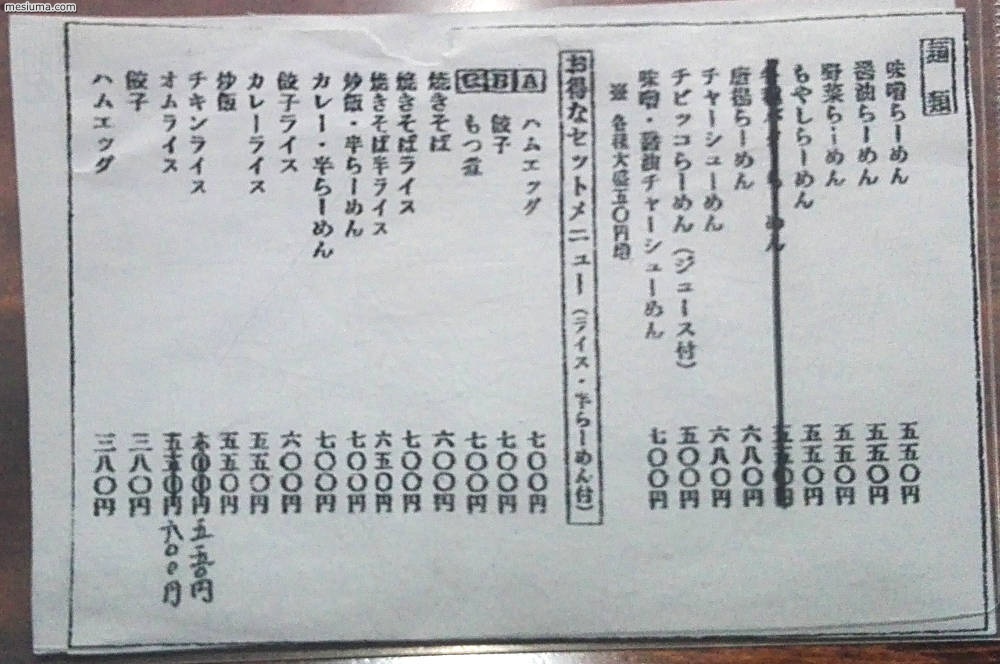 mesiuma.com
麺類
味噌らーめん 五五〇円
醤油らーめん 五五〇円
野菜らーめん 五五〇円
もやしらーめん 五五〇円
らーめん 五五〇円
唐揚らーめん 六八〇円
チャーシューめん 六八〇円
チビッコらーめん(ジュース付) 五〇〇円
味噌・醤油チャーシューめん 七〇〇円
※ 各種大盛五〇円増
お得なセットメニュー(ライス・半らーめん付)
A ハムエッグ 七〇〇円
B 餃子 七〇〇円
C もつ煮 七〇〇円
焼きそば 六〇〇円
焼きそばライス 七〇〇円
焼きそば半ライス 六五〇円
炒飯・半らーめん 七〇〇円
カレー・半らーめん 七〇〇円
餃子ライス 六〇〇円
カレーライス 五五〇円
炒飯 五五〇円
チキンライス 六〇〇円 五五〇円
オムライス 五五〇円 六〇〇円
餃子 三八〇円
ハムエッグ 三八〇円